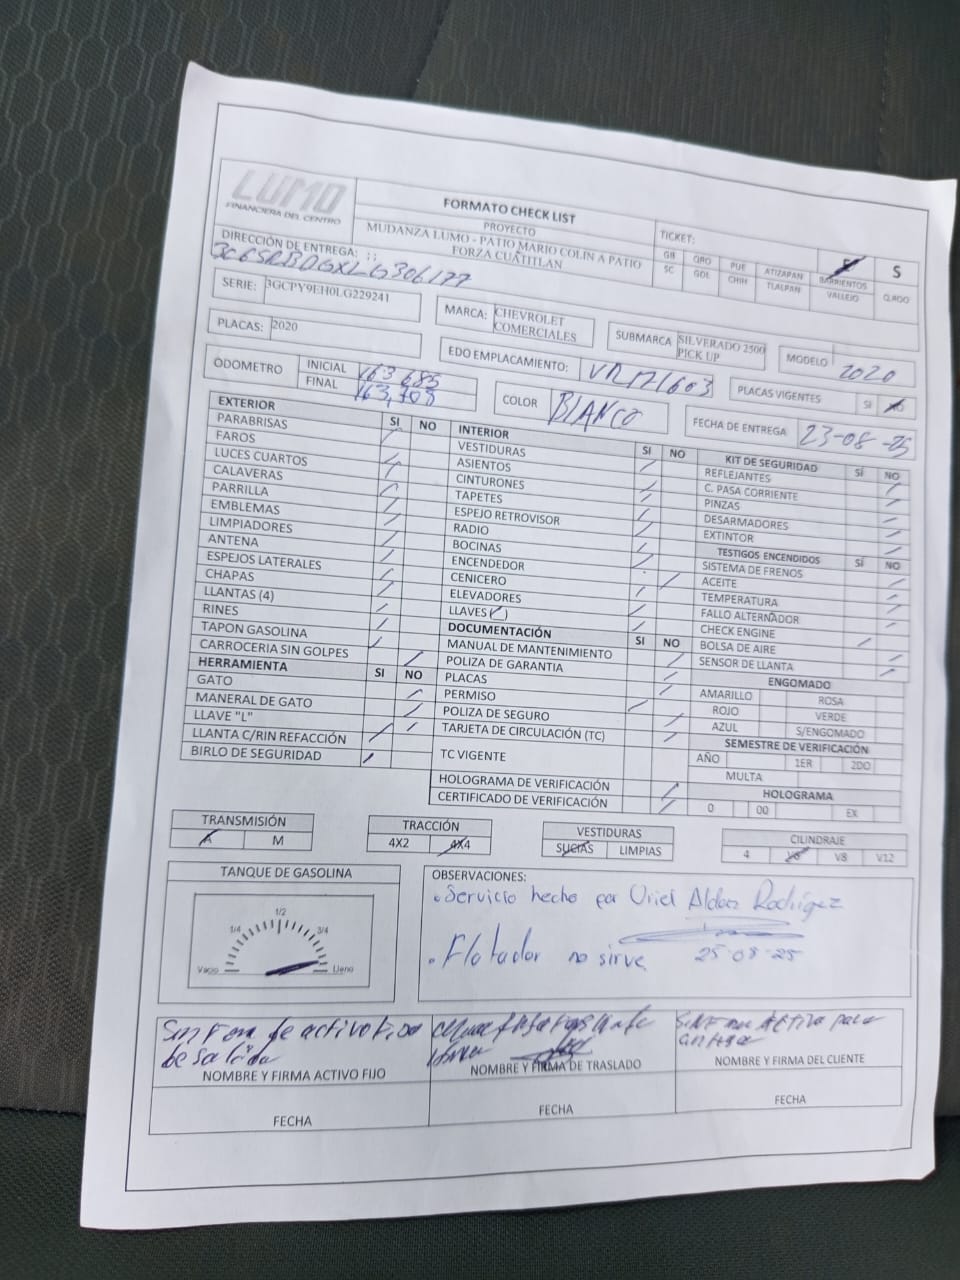 LUMO
FINANCIERA DEL CENTRO
FORMATO CHECK LIST
PROYECTO
MUDANZA LUMO - PATIO MARIO COLIN A PATIO
FORZA CUATITLAN
TICKET:
GB QRO PUE ATIZAPAN BARRIENTOS
SC GDL CHIH TLALPAN VALLEJO
S
DIRECCIÓN DE ENTREGA: ; ;
3C6SRBDGXLG306177
SERIE: 3GCPY9EH0LG229241
MARCA: CHEVROLET
COMERCIALES
SUBMARCA SILVERADO 2500
PICK UP
MODELO 2020
PLACAS: 2020
EDO EMPLACAMIENTO: VR171603
PLACAS VIGENTES SI NO
ODOMETRO
INICIAL 163 685
FINAL 163,708
COLOR BLANCO
FECHA DE ENTREGA 23-08-25
EXTERIOR SI NO
PARABRISAS
FAROS
LUCES CUARTOS
CALAVERAS
PARRILLA
EMBLEMAS
LIMPIADORES
ANTENA
ESPEJOS LATERALES
CHAPAS
LLANTAS (4)
RINES
TAPON GASOLINA
CARROCERIA SIN GOLPES
HERRAMIENTA SI NO
GATO
MANERAL DE GATO
LLAVE "L"
LLANTA C/RIN REFACCIÓN
BIRLO DE SEGURIDAD
INTERIOR SI NO
VESTIDURAS
ASIENTOS
CINTURONES
TAPETES
ESPEJO RETROVISOR
RADIO
BOCINAS
ENCENDEDOR
CENICERO
ELEVADORES
LLAVES ( )
DOCUMENTACIÓN SI NO
MANUAL DE MANTENIMIENTO
POLIZA DE GARANTIA
PLACAS
PERMISO
POLIZA DE SEGURO
TARJETA DE CIRCULACIÓN (TC)
TC VIGENTE
HOLOGRAMA DE VERIFICACIÓN
CERTIFICADO DE VERIFICACIÓN
KIT DE SEGURIDAD SÍ NO
REFLEJANTES
C. PASA CORRIENTE
PINZAS
DESARMADORES
EXTINTOR
TESTIGOS ENCENDIDOS SÍ NO
SISTEMA DE FRENOS
ACEITE
TEMPERATURA
FALLO ALTERNADOR
CHECK ENGINE
BOLSA DE AIRE
SENSOR DE LLANTA
ENGOMADO
AMARILLO ROSA
ROJO VERDE
AZUL S/ENGOMADO
SEMESTRE DE VERIFICACIÓN
AÑO 1ER 2DO
MULTA
HOLOGRAMA
0 00 EX
TRANSMISIÓN
A M
TRACCIÓN
4X2 4X4
VESTIDURAS
SUCIAS LIMPIAS
CILINDRAJE
4 V6 V8 V12
TANQUE DE GASOLINA
1/2
1/4 3/4
Vacio Lleno
OBSERVACIONES:
. Servicio hecho por Uriel Aldan Rodríguez
. Flotador no sirve 25-08-25
Sin Firma de activo Fijo
de salida
NOMBRE Y FIRMA ACTIVO FIJO
NOMBRE Y FIRMA DE TRASLADO
NOMBRE Y FIRMA DEL CLIENTE
FECHA
FECHA
FECHA